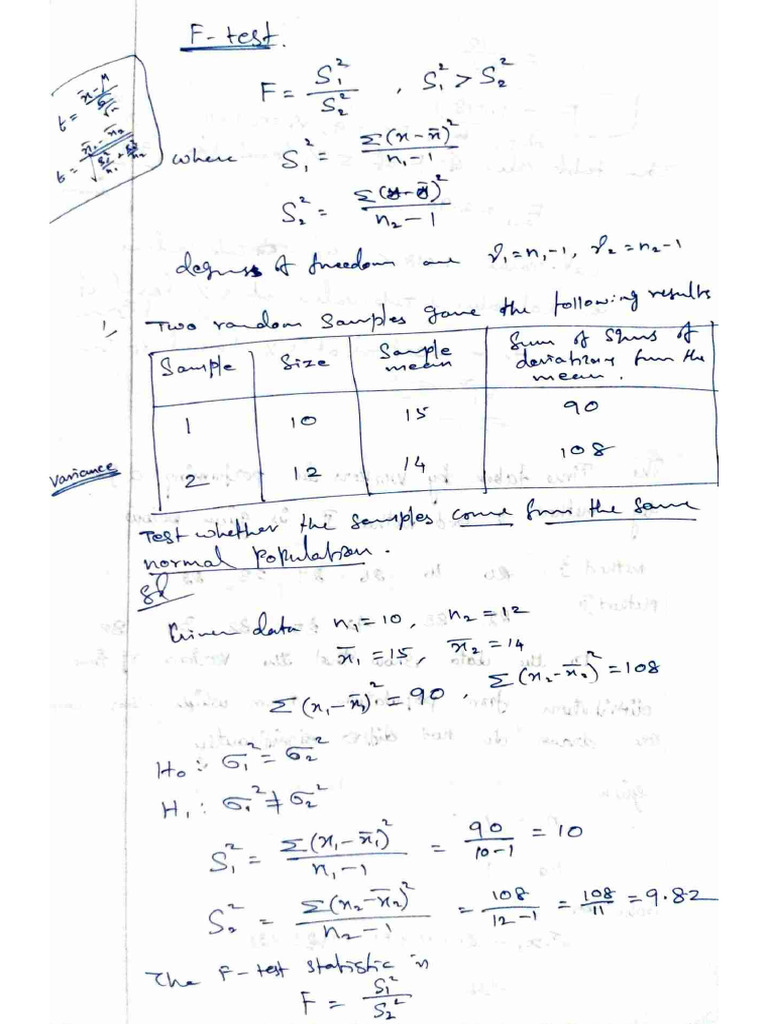 F-test.
F = S₁²/S₂² , S₁² > S₂²
t = (x̄-μ)/(s/√n)
t = (x̄₁-x̄₂)/√(s₁²/n₁ + s₂²/n₂)
where S₁² = Σ(x-x̄)²/(n₁-1)
S₂² = Σ(y-ȳ)²/(n₂-1)
degrees of freedom are ν₁=n₁-1, ν₂=n₂-1
1, Two random samples gave the following results
Sample | Size | Sample mean | Sum of Sqrs of deviations from the mean.
1 | 10 | 15 | 90
2 | 12 | 14 | 108
Variance
Test whether the samples come from the same
normal population.
Sol
Given data n₁=10, n₂=12
x̄₁=15, x̄₂=14
Σ(x₁-x̄₁)²=90, Σ(x₂-x̄₂)²=108
H₀: σ₁²=σ₂²
H₁: σ₁²≠σ₂²
S₁² = Σ(x₁-x̄₁)²/(n₁-1) = 90/(10-1) = 10
S₂² = Σ(x₂-x̄₂)²/(n₂-1) = 108/(12-1) = 108/11 = 9.82
The F-test statistic is
F = S₁²/S₂²